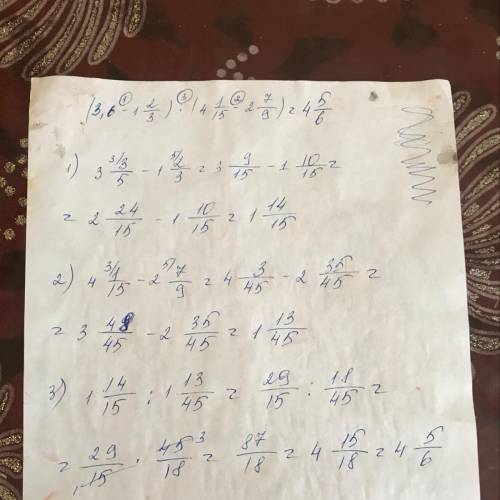 (3,6 ① - 1 2/3) ③ : (4 1/15 ② - 2 7/9) = 4 5/6
1) 3 ³⁾3/5 - 1 ⁵⁾2/3 = 3 9/15 - 1 10/15 =
= 2 24/15 - 1 10/15 = 1 14/15
2) 4 ³⁾1/15 - 2 ⁵⁾7/9 = 4 3/45 - 2 35/45 =
= 3 48/45 - 2 35/45 = 1 13/45
3) 1 14/15 : 1 13/45 = 29/15 : 18/45 =
= 29/15 · 45³/18 = 87/18 = 4 15/18 = 4 5/6